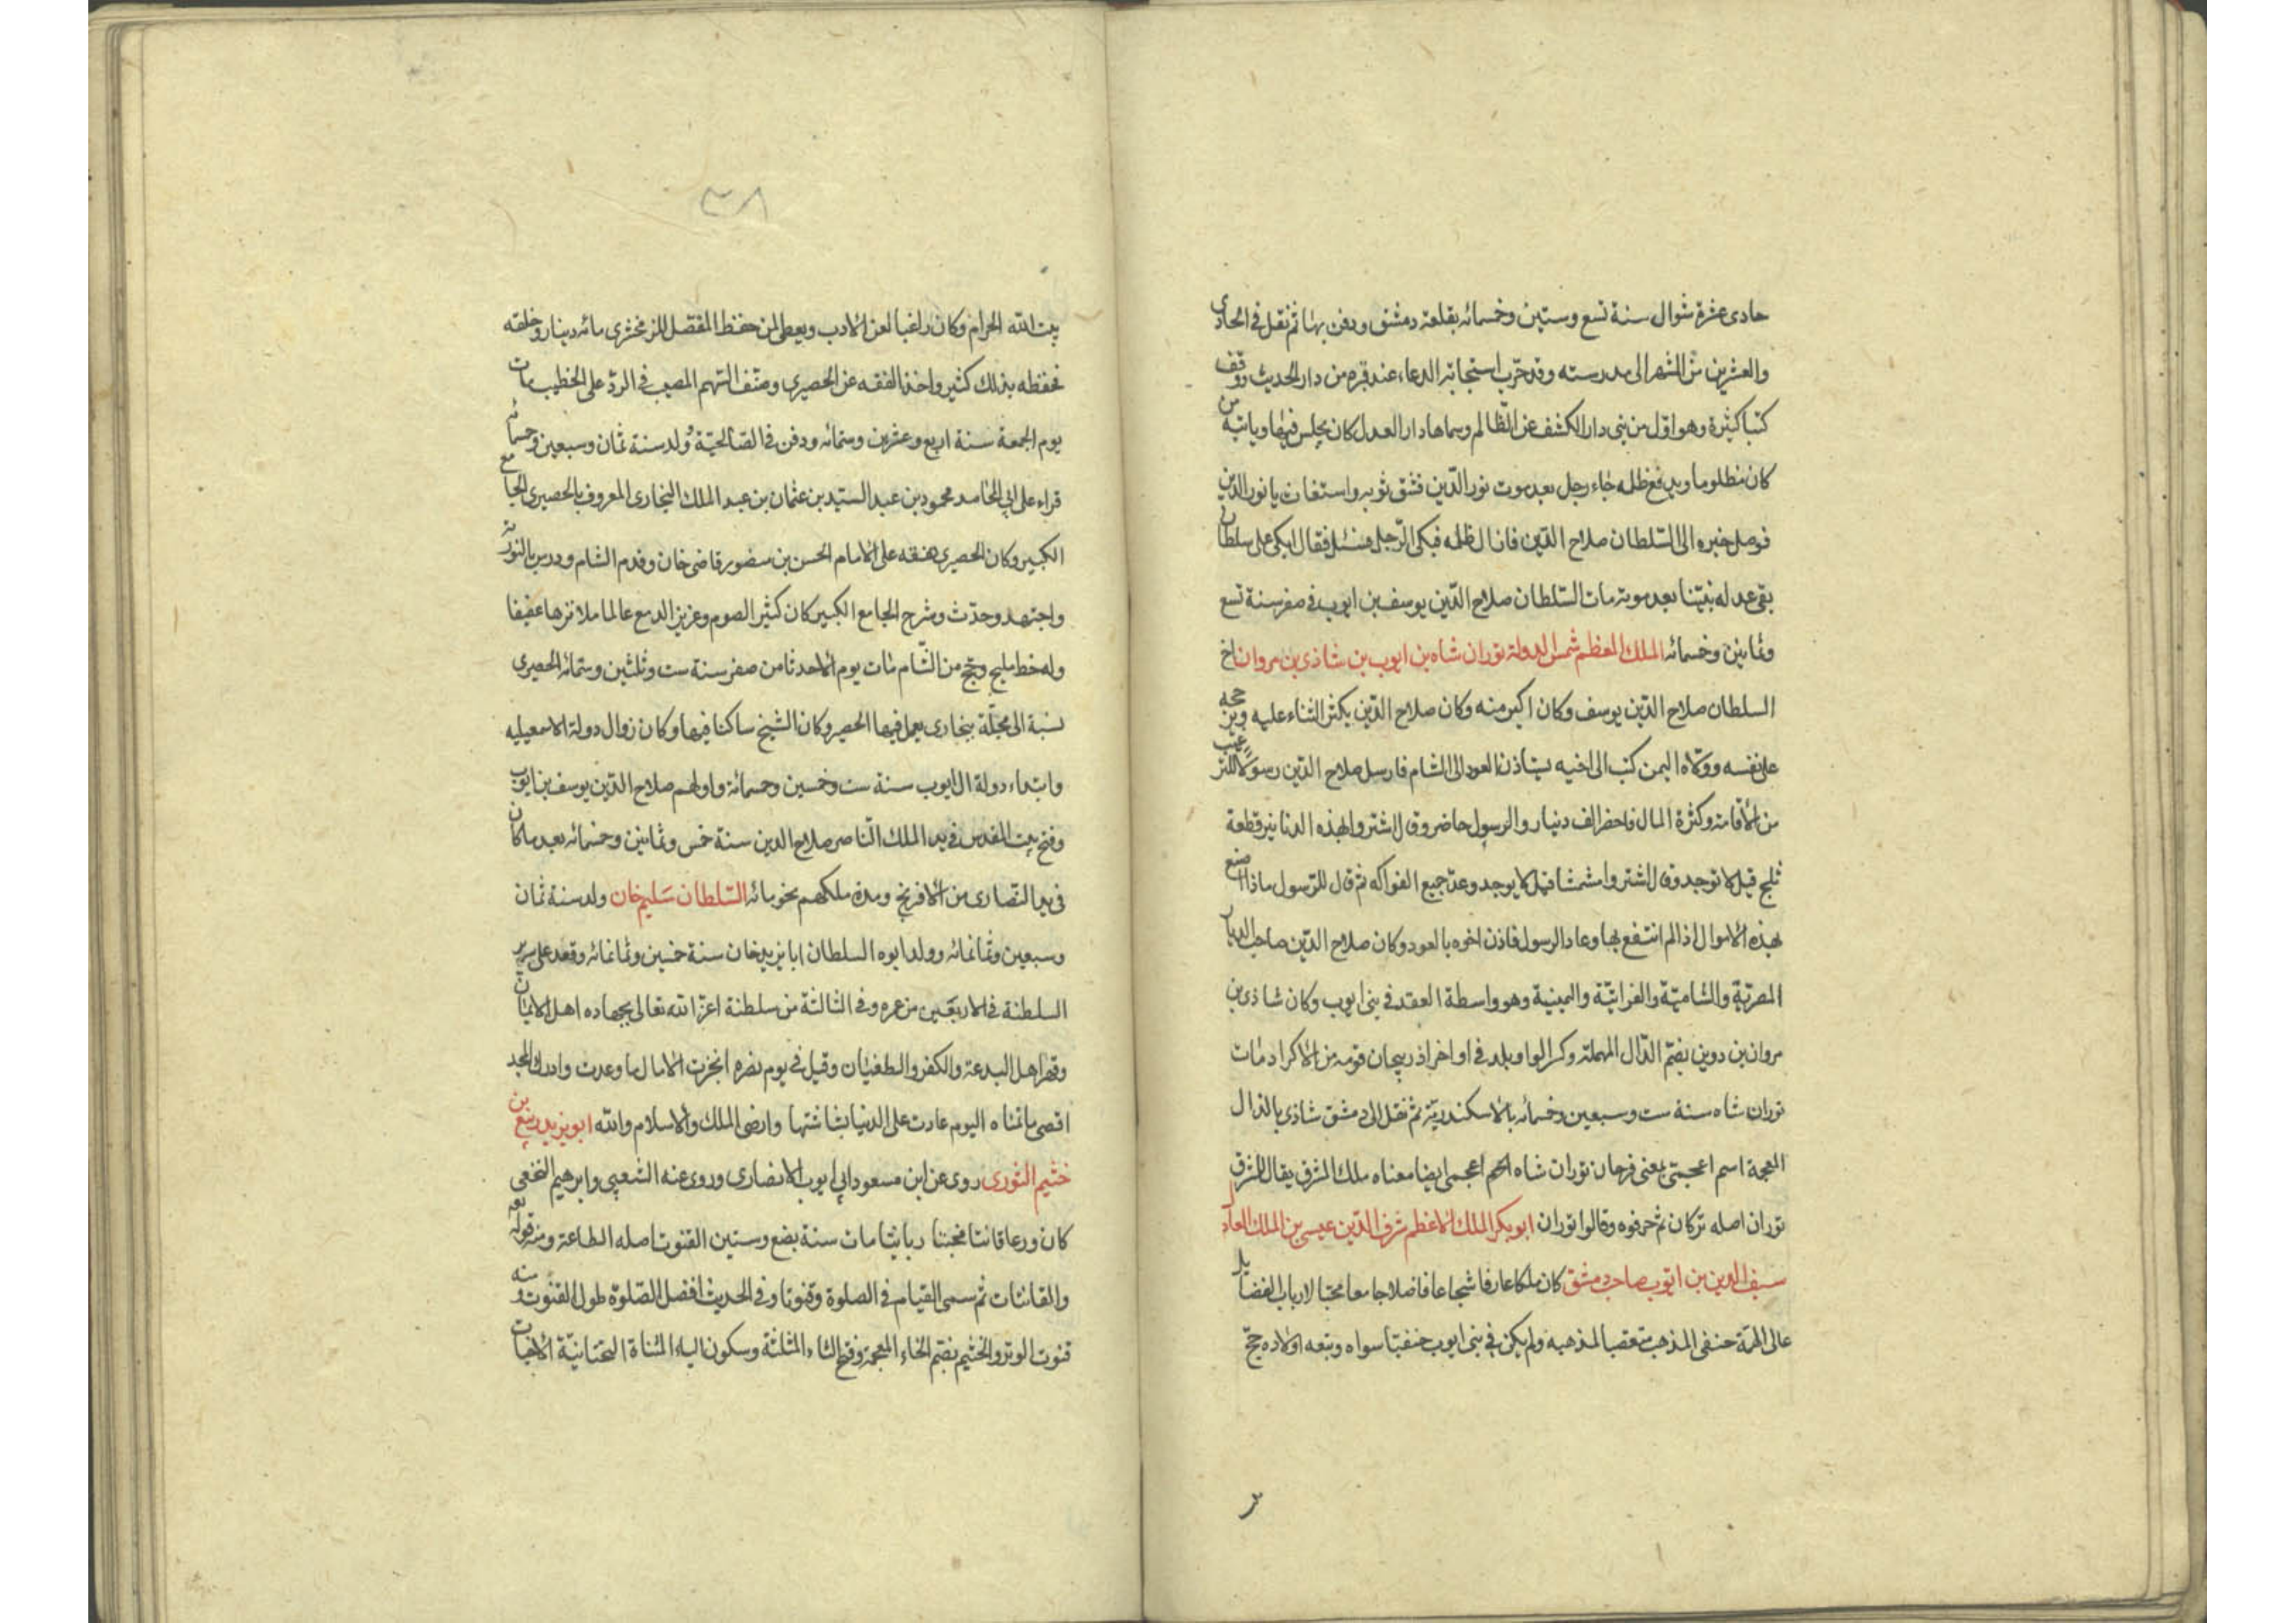 حادى عشرة شوال سنة تسع وستين وخمسمائه بقلعة دمشق ودفن بها ثم نقل فى الحادى
والعشرين من الشهر الى مدرسته وقد جرّب استجابة الدعاء عند قبره من دار الحديث ووقف
كتبا كثيرة وهو اوّل من بنى دار الكشف عن الظالم وسماها دار العدل كان يجلس فيها وياتيه من
كان مظلوما ويدفع ظلمه جاء رجل بعد موت نور الدّين فشق ثوبه واستغاث يا نور الدين
فوصل خبره الى السّلطان صلاح الدّين فازال ظلمه فبكى الرّجل فسئل فقال ابكى على سلطان
بقى عدله بيننا بعد موته مات السّلطان صلاح الدّين يوسف بن ايوب فى صفر سنة تسع
وثمانين وخمسمائه الملك المعظم شمس الدولة توران شاه بن ايوب بن شاذى بن مروان اخ
السلطان صلاح الدّين يوسف وكان اكبر منه وكان صلاح الدّين يكثر الثناء عليه ويرجحه
على نفسه وولّاه اليمن كتب الى اخيه يستاذن العود الى الشام فارسل صلاح الدّين رسولا للترغيب
من الاقامة وكثرة المال فاحضر الف دينار والرسول حاضر وقال اشتروا بهذه الدنانير قطعة
ثلج قيل لا توجد وقال اشتروا مشمشا قيل لا يوجد وعدّ جميع الفواكه ثم قال للرّسول ماذا اصنع
بهذه الاموال اذا لم انتفع بها وعاد الرسول فاذن اخوه بالعود وكان صلاح الدّين صاحب الديار
المصريّة والشاميّة والفراتيّة واليمنية وهو واسطة العقد فى بنى ايوب وكان شاذى بن
مروان بن دوين بضمّ الدّال المهملة وكسر الواو بلد فى اواخر اذربيجان قومه من الاكراد مات
توران شاه سنة ست وسبعين وخمسمائه بالاسكندريّة ثم نقل الى دمشق شاذى بالذال
المعجمة اسم اعجمىّ بمعنى فرحان توران شاه اسم اعجمى ايضا معناه ملك الشرق يقال للشرق
توران اصله تركان ثم حرفوه وقالوا توران ابو بكر الملك الاعظم شرف الدّين عيسى بن الملك العادل
سيف الدين بن ايوب صاحب دمشق كان ملكا عارفا شجاعا فاضلا جامعا محبّا لارباب الفضايل
عالى الهمّة حنفى المذهب متعصبا لمذهبه ولم يكن فى بنى ايوب حنفيّا سواه وتبعه اولاده حجّ
٣٨
بيت الله الحرام وكان راغبا لفن الادب ويعطى لمن حفظ المفصّل للزمخشرى مائه دينار وخلعة
فحفظه بذلك كثير واخذ الفقه عن الحصيرى وصنّف السّهم المصيب فى الردّ على الخطيب مات
يوم الجمعة سنة اربع وعشرين وستمائه ودفن فى الصّالحيّة وُلد سنة ثمان وسبعين وخمسمائه
قراء على ابى المحامد محمود بن عبد السيّد بن عثمان بن عبد الملك البخارى المعروف بالحصيرى الجامع
الكبير وكان الحصيرى تفقه على الامام الحسن بن منصور قاضى خان وقدم الشام ودرس بالنوريّة
واجتهد وحدّث وشرح الجامع الكبير كان كثير الصوم وغزير الدمع عاملا نزها عفيفا
وله خط مليح وحج من الشّام مات يوم الاحد ثامن صفر سنة ست وثلثين وستمائه الحصيرى
نسبة الى محلّة ببخارى يعمل فيها الحصير وكان الشيخ ساكنا فيها وكان زوال دولة الاسمعيليه
وابتداء دولة ال ايوب سنة ست وخمسين وخمسمائة واولهم صلاح الدّين يوسف بن ايوب
وفتح بيت المقدس فى يد الملك النّاصر صلاح الدين سنة خمس وثمانين وخمسمائه بعد ما كان
فى يد النّصارى من الافرنج ومدة ملكهم نحو مائه السّلطان سَليم خان ولد سنة ثمان
وسبعين وثمانمائه وولد ابوه السلطان ابا يزيد خان سنة خمسين وثمانمائه وقعد على سرير
السلطنة فى الاربعين من عمره وفى الثالثة من سلطنة اعزّ الله تعالى بجهاده اهل الايمان
وقهر اهل البدعة والكفر والطغيان وقيل فى يوم نصره انجزت الامال ما وعدت وادرك المجد
اقصى ما تمنّاه اليوم عادت على الدنيا بشاشتها وارضى الملك والاسلام والله ابو يزيد ربيع بن
خثيم الثورى روى عن ابن مسعود ابى ايوب الانصارى وروى عنه الشعبى وابرهيم النخعى
كان ورعا قانتا مخبتا ربانيّا مات سنة بضع وستين القنوت اصله الطاعة ومنه قوله تعه
والقانتات ثم سمى القيام فى الصلوة وقنوتا وفى الحديث افضل الصّلوة طول القنوت ومنه
قنوت الوتر والخثيم بضمّ الخاء المعجمة وفتح الثاء المثلثة وسكون الياء المثناة التحتانيّة الاخبات